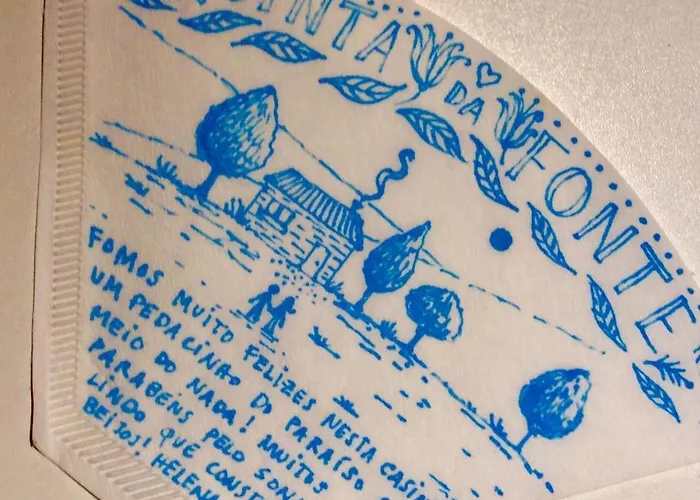 QUINTA DA FONTE
FOMOS MUITO FELIZES NESTA
UM PEDACINHO DO PARAÍSO
MEIO DO NADA! MUITOS
PARABÉNS PELO
LINDO QUE
BEIJOS!
HELENA